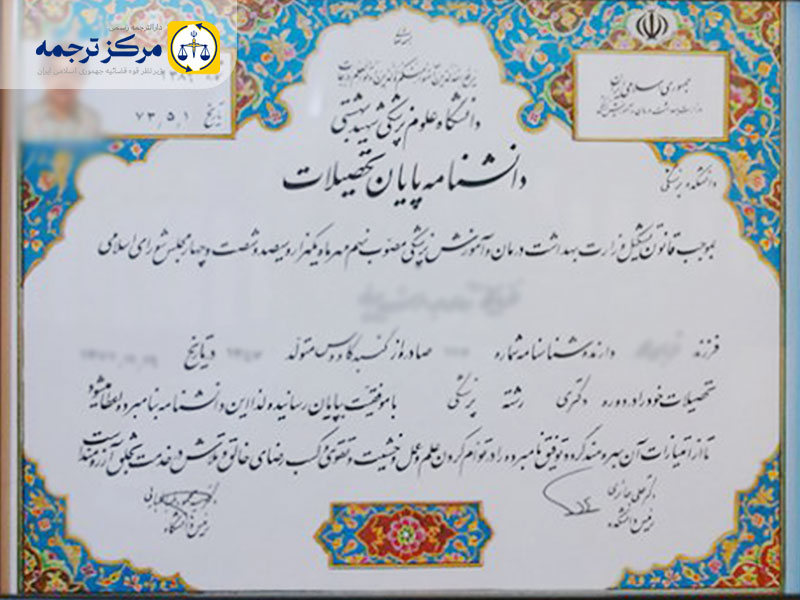 دارالترجمه رسمی
مرکز ترجمه
زیر نظر قوه قضائیه جمهوری اسلامی ایران
تاریخ ۷۳٫۵٫۱
جمهوری اسلامی ایران
وزارت بهداشت، درمان و آموزش پزشکی
یرفع الله الذین آمنوا منکم والذین اوتوا العلم درجات
دانشگاه علوم پزشکی شهید بهشتی
دانشنامه پایان تحصیلات
دانشکده پزشکی
بموجب قانون تشکیل وزارت بهداشت درمان و آموزش پزشکی مصوب نهم مهرماه یکهزار و سیصد و شصت و چهار مجلس شورای اسلامی
فرزند دارنده شناسنامه شماره صادره از گنبد کاووس متولد در تاریخ
تحصیلات خود را در دوره دکتری رشته پزشکی با موفقیت بپایان رسانیده لذا این دانشنامه بنامبرده اعطا میشود
تا از امتیازات آن بهره مند گردد توفیق نامبرده را در توام کردن علم و عمل خشیت و تقوی و کسب رضای خالق و تلاش در خدمت بخلق آرزومند است
دکتر علی حائری
رئیس دانشکده
رئیس دانشگاه